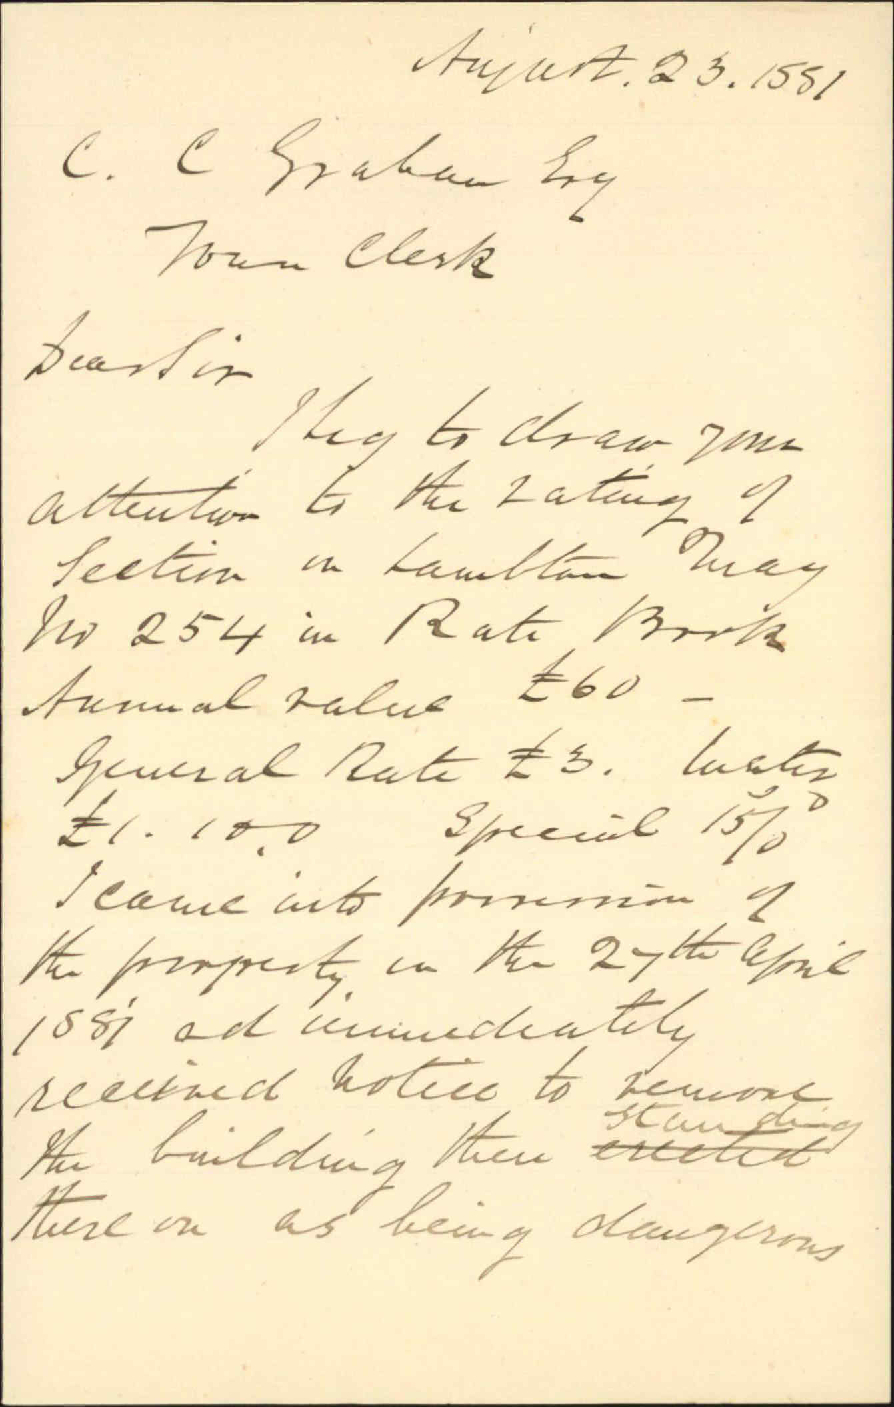 August. 23. 1881
C. C Graham Esq
Town Clerk
Dear Sir
I beg to draw your
attention to the rating of
Section on Lambton Quay
No 254 in Rate Book
Annual value £60 –
General Rate £3. Water
£1. 10. 0 Special 15/0
I came into possession of
the property on the 27th April
1881 and immediately
received notice to remove
the building then ~~erected~~ standing
there on as being dangerous